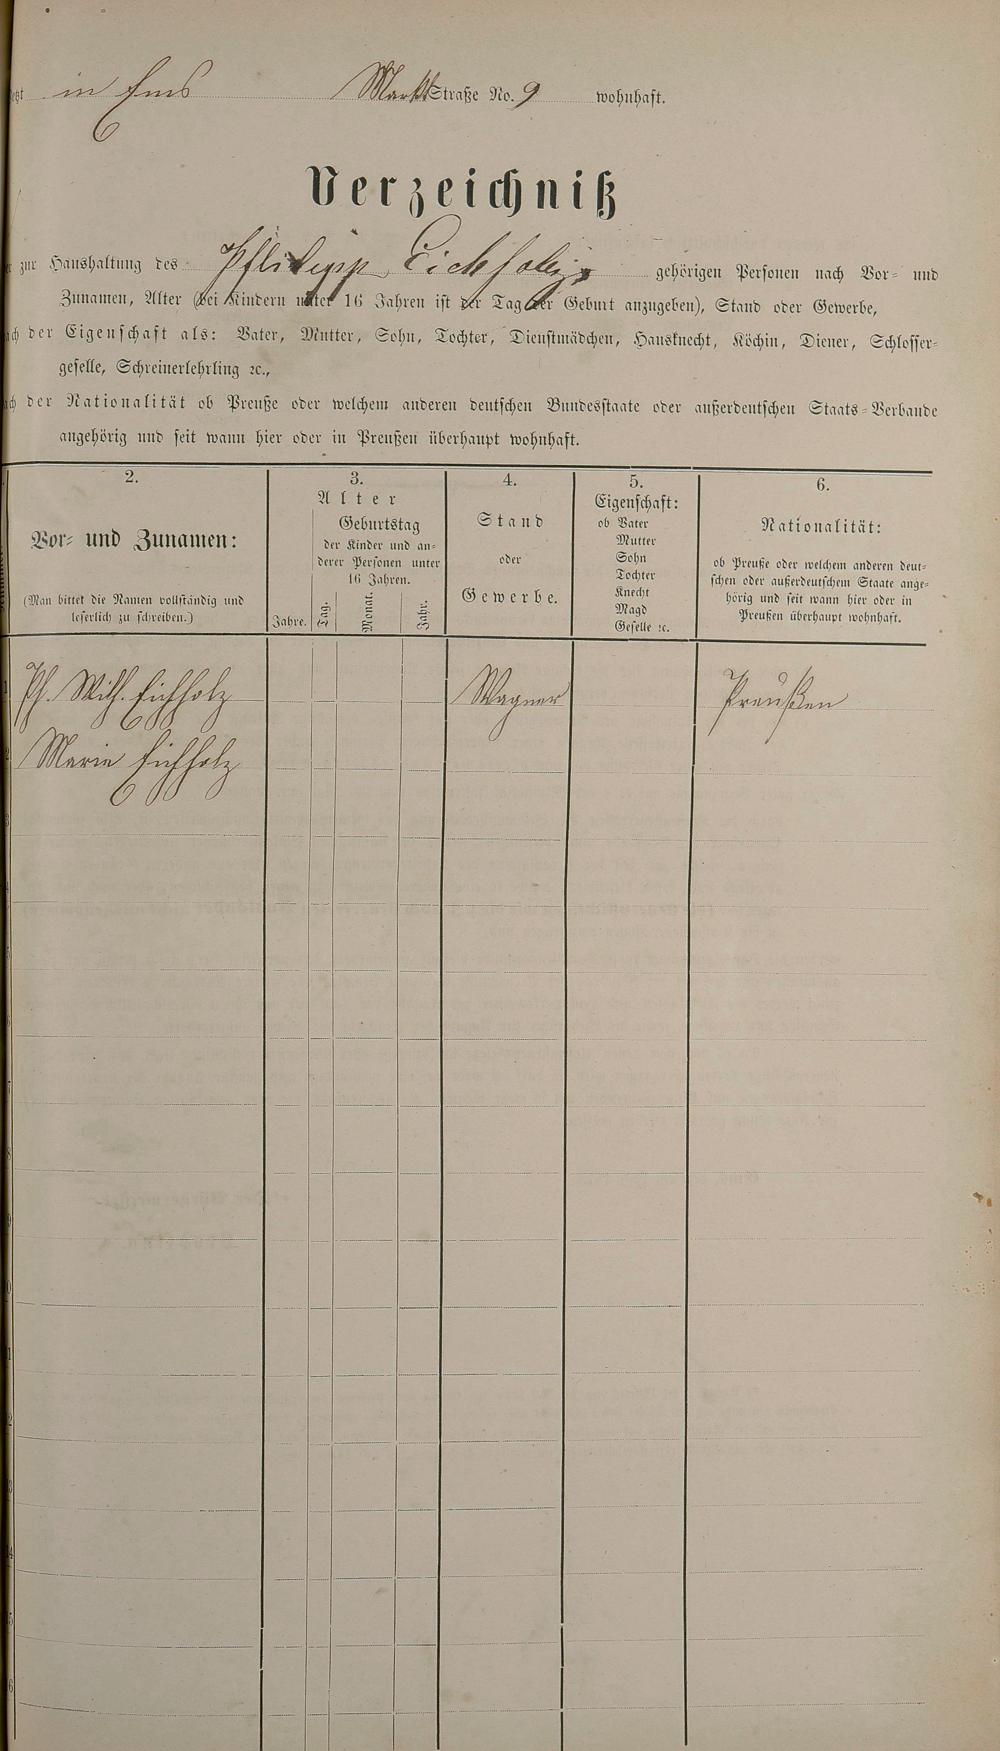 in Ems Markt Straße No. 9 wohnhaft.
Verzeichniß
zur Haushaltung des Philipp Eichholz gehörigen Personen nach Vor- und
Zunamen, Alter (bei Kindern unter 16 Jahren ist der Tag der Geburt anzugeben), Stand oder Gewerbe,
der Eigenschaft als: Vater, Mutter, Sohn, Tochter, Dienstmädchen, Hausknecht, Köchin, Diener, Schlosser-
geselle, Schreinerlehrling ꝛc.,
der Nationalität ob Preuße oder welchem anderen deutschen Bundesstaate oder außerdeutschen Staats-Verbande
angehörig und seit wann hier oder in Preußen überhaupt wohnhaft.
2.
Vor- und Zunamen:
(Man bittet die Namen vollständig und
leserlich zu schreiben.)
3.
Alter
Geburtstag
der Kinder und an-
derer Personen unter
16 Jahren.
Jahre. Tag. Monat. Jahr.
4.
Stand
oder
Gewerbe.
5.
Eigenschaft:
ob Vater
Mutter
Sohn
Tochter
Knecht
Magd
Geselle ꝛc.
6.
Nationalität:
ob Preuße oder welchem anderen deut-
schen oder außerdeutschem Staate ange-
hörig und seit wann hier oder in
Preußen überhaupt wohnhaft.
Ph. Wilh. Eichholz Wagner Preußen
Marie Eichholz